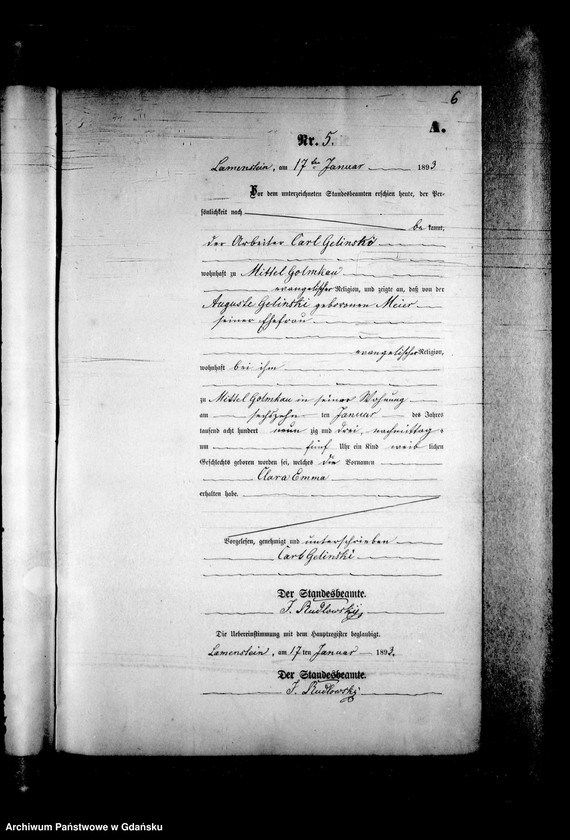 6
A.
Nr. 5.
Lamenstein, am 17ten Januar 1893
Vor dem unterzeichneten Standesbeamten erschien heute, der Per-
sönlichkeit nach
be kannt,
der Arbeiter Carl Gelinski
wohnhaft zu Mittel Golmkau
evangelischer Religion, und zeigte an, daß von der
Auguste Gelinski geborenen Meier
seiner Ehefrau
evangelischer Religion,
wohnhaft bei ihm
zu Mittel Golmkau in seiner Wohnung
am sechszehn ten Januar des Jahres
tausend acht hundert neun zig und drei, nachmittag s
um fünf Uhr ein Kind weib lichen
Geschlechts geboren worden sei, welches die Vornamen
Clara Emma
erhalten habe.
Vorgelesen, genehmigt und unterschrieben
Carl Gelinski
Der Standesbeamte.
J. Rudlowski
Die Uebereinstimmung mit dem Hauptregister beglaubigt.
Lamenstein, am 17 ten Januar 1893.
Der Standesbeamte.
J. Rudlowski
Archiwum Państwowe w Gdańsku